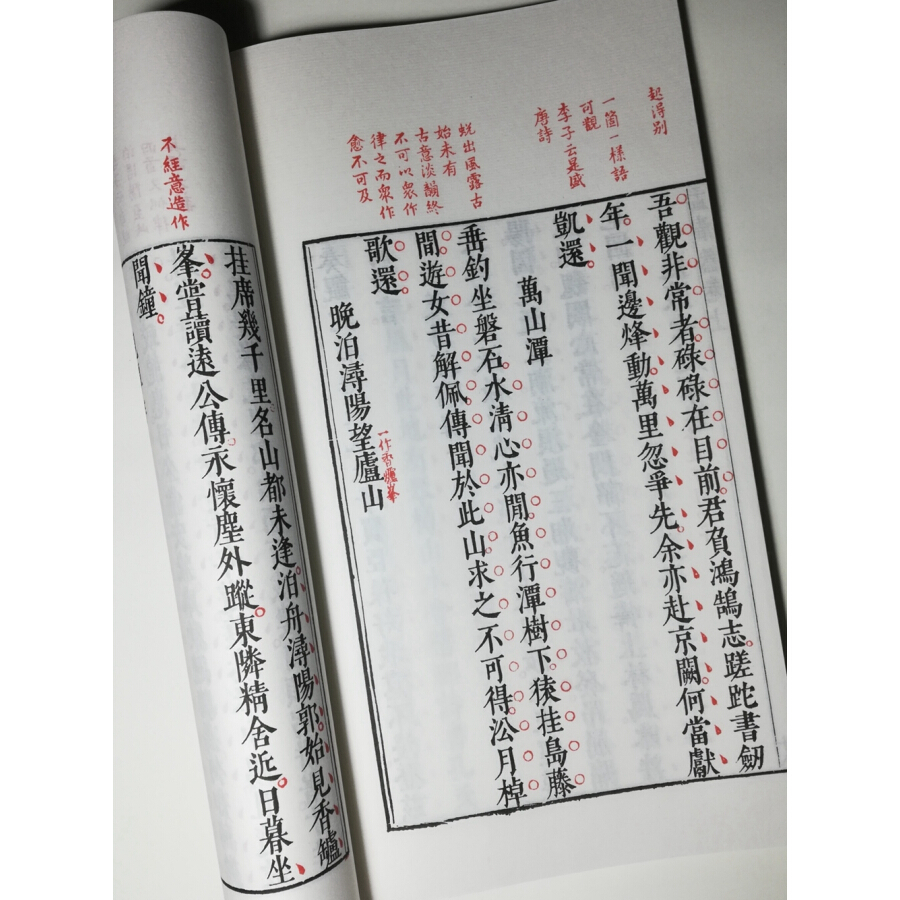 起得別
一箇一樣語
可觀
李子云是盛
唐詩
蛻出風露古
始未有
古意淡韻終
不可以衆作
律之而衆作
愈不可及
吾觀非常者碌碌在目前君負鴻鵠志蹉跎書劒
年一聞邊烽動萬里忽爭先余亦赴京闕何當獻
凱還
萬山潭
垂釣坐磐石水清心亦閒魚行潭樹下猿挂島藤
間遊女昔解佩傳聞於此山求之不可得㳂月棹
歌還
晚泊潯陽望廬山
一作香爐峯
不經意造作
挂席幾千里名山都未逢泊舟潯陽郭始見香鑪
峯嘗讀遠公傳永懷塵外蹤東隣精舍近日暮坐
聞鐘